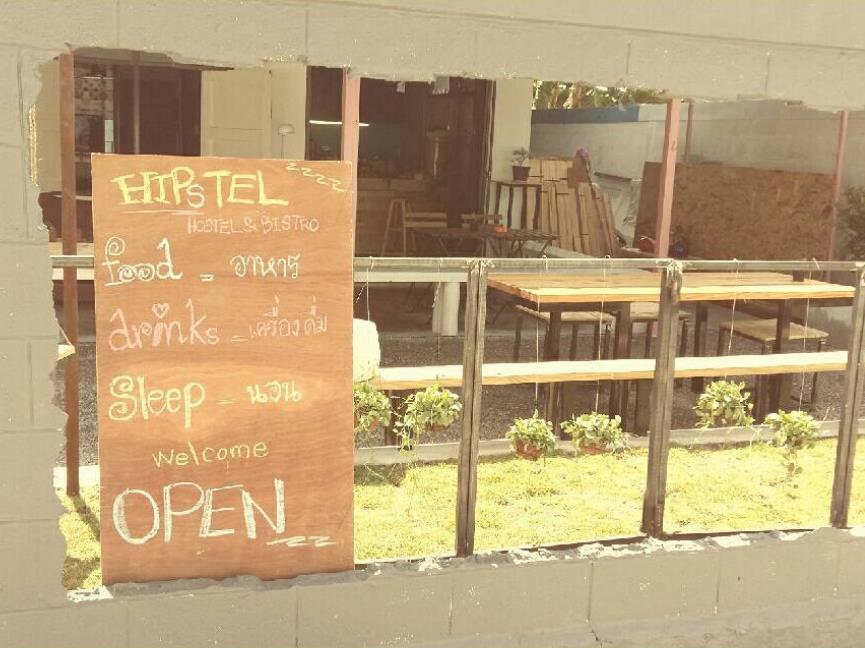 HIPsTEL
HOSTEL & BISTRO
food - อาหาร
drinks - เครื่องดื่ม
Sleep - นอน
welcome
OPEN